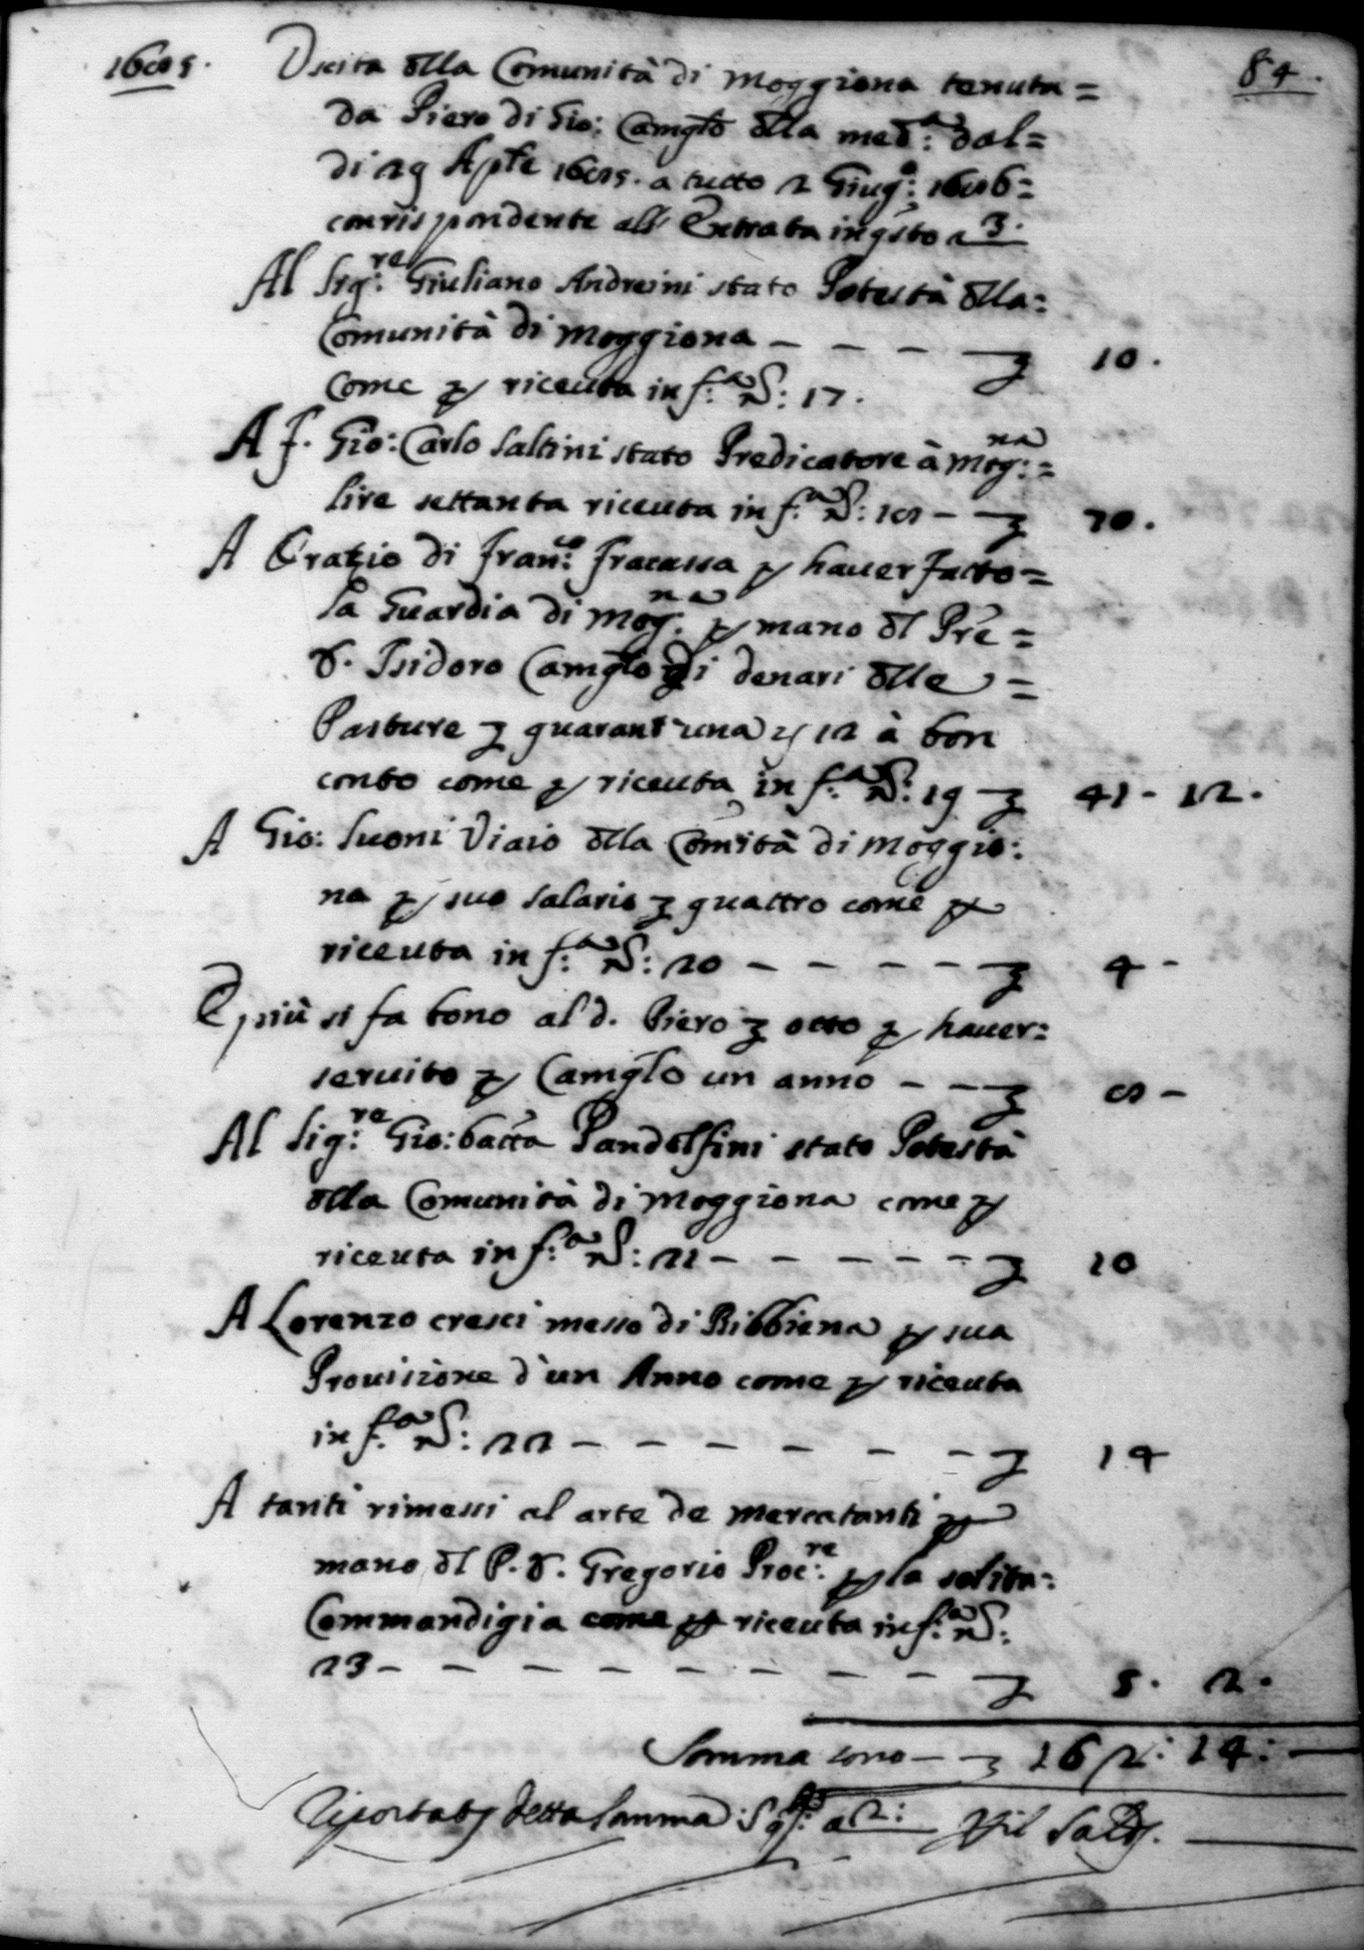 1685.
84.
Uscita dlla Comunità di Moggiona tenuta=
da Piero di Gio: Camglo dlla med:a dal=
di 29 Aple 1685. a tutto 2 Giug:o 1686=
corrispondente all' Entrata in qsto a 3.
Al Sig:re Giuliano Andreini stato Potestà dlla=
Comunità di Moggiona - - - - £ 10.
Come p riceuta in f:a N: 17.
A f. Gio: Carlo Saltini stato Predicatore à Mog:na=
lire settanta riceuta in f:a N: 18 - - £ 70.
A Orazio di Fran:co Fracassa p hauer fatto=
la Guardia di Mog:na p mano dl Pre=
D. Isidoro Camglo di denari dlle=
Pasture £ quarant'una s 12 à bon
conto come p riceuta in f:a N: 19 - £ 41 - 12.
A Gio: Suoni Viaio dlla Comità di Moggio:
na p suo salario £ quattro come p
riceuta in f:a N: 20 - - - - - £ 4 -
E più si fa bono al d. Piero £ otto p hauer=
seruito p Camglo un anno - - - £ 8 -
Al Sig:re Gio: batta Pandolfini stato Potestà
dlla Comunità di Moggiona come p
riceuta in f:a N: 21 - - - - - - £ 10
A Lorenzo Cresci messo di Bibbiena p sua
Prouisione d'un Anno come p riceuta
in f:a N: 22 - - - - - - - £ 14
A tanti rimessi al arte de Mercatanti p
mano dl P. D. Gregorio Proc:re p la solita=
Commandigia come p riceuta in f:a N:
23 - - - - - - - - - £ 5. 2.
Somma sono - - £ 162: 14: -
Riportato detta Somma: a 2: